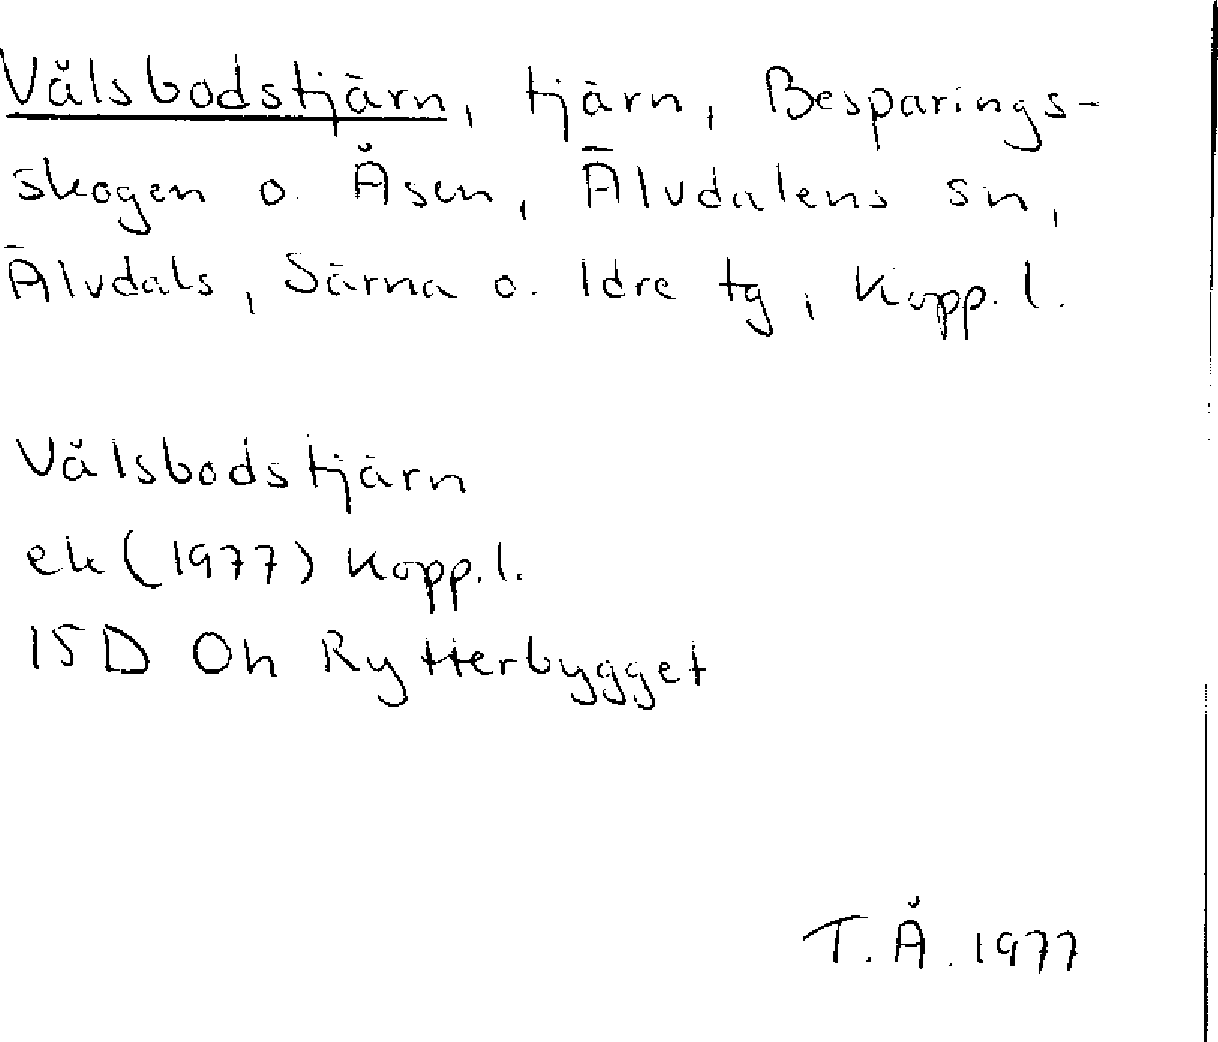 Vålsbodstjärn, tjärn, Besparings-
skogen o. Åsen, Älvdalens sn,
Älvdals, Särna o. Idre tg, Kopp. l.
Vålsbodstjärn
ek (1977) Kopp. l.
15D Öh Rytterbygget
T. Å. 1977